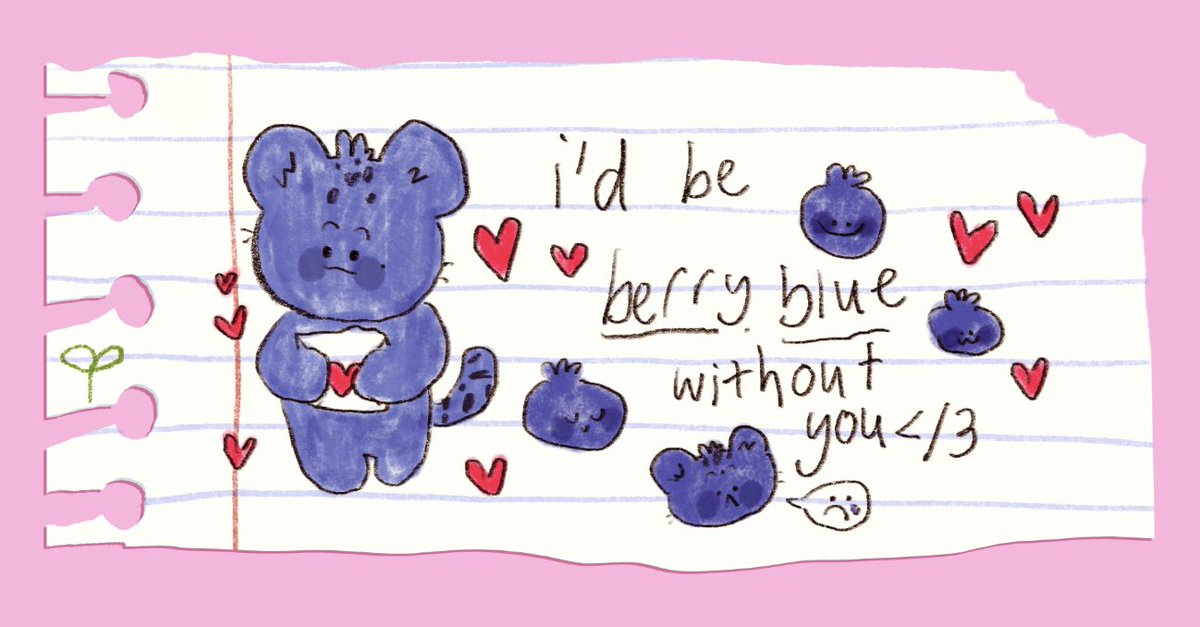 i'd be
berry blue
without
you</3